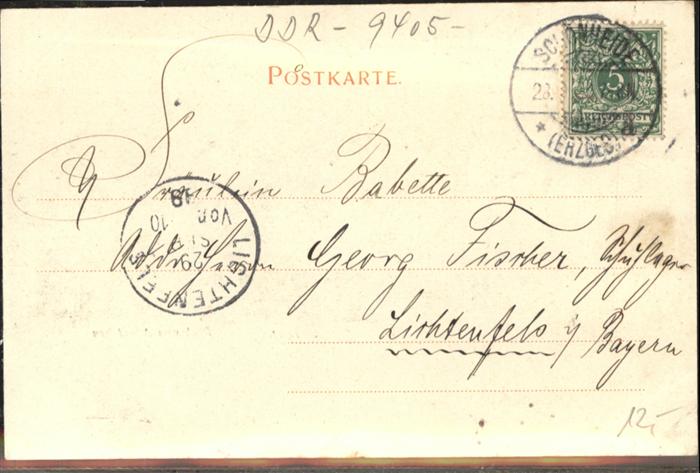 DDR - 9405 -
POSTKARTE.
SCHÖNHEIDE
28.
5
REICHSPOST
* (ERZGEB.)
Fräulein Babette
Addr. Herrn Georg Fischer, Schuhlager
Lichtenfels i/ Bayern
LICHTENFELS
29
10
Vor
12,-